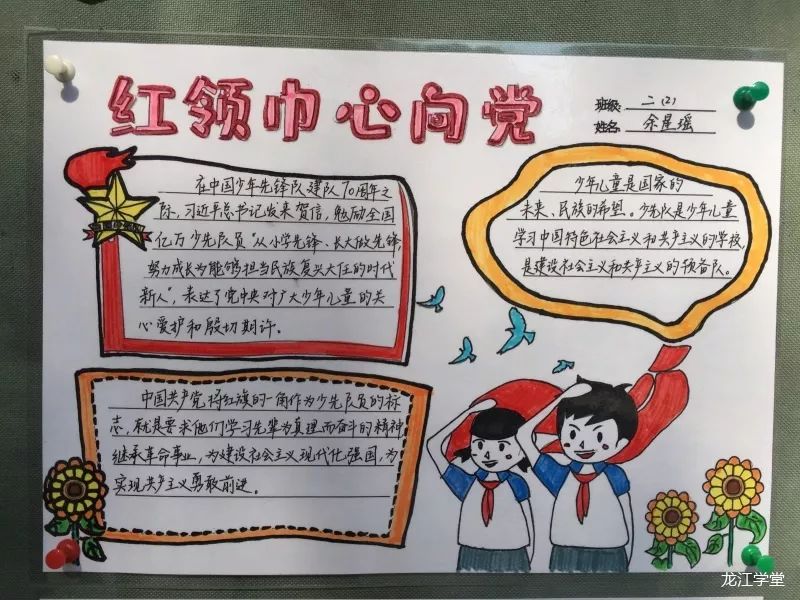 红领巾心向党
班级：二（2）
姓名：余星瑶
在中国少年先锋队建队70周年之
际，习近平总书记发来贺信，勉励全国
亿万少先队员“从小学先锋、长大做先锋，
努力成长为能够担当民族复兴大任的时代
新人”，表达了党中央对广大少年儿童的关
心爱护和殷切期许。
少年儿童是国家的
未来、民族的希望。少先队是少年儿童
学习中国特色社会主义和共产主义的学校，
是建设社会主义和共产主义的预备队。
中国共产党将红旗的一角作为少先队员的标
志，就是要求他们学习先辈为真理而奋斗的精神
继承革命事业，为建设社会主义现代化强国，为
实现共产主义勇敢前进。
龙江学堂